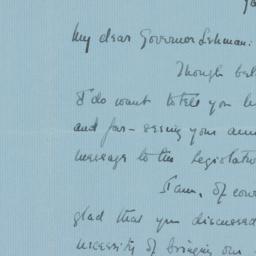 My dear Governor Lehman:
Though bel
I do want to tell you h
and far-seeing your ann
message to the Legislatu
I am, of cour
glad that you discussed
necessity of bringing our